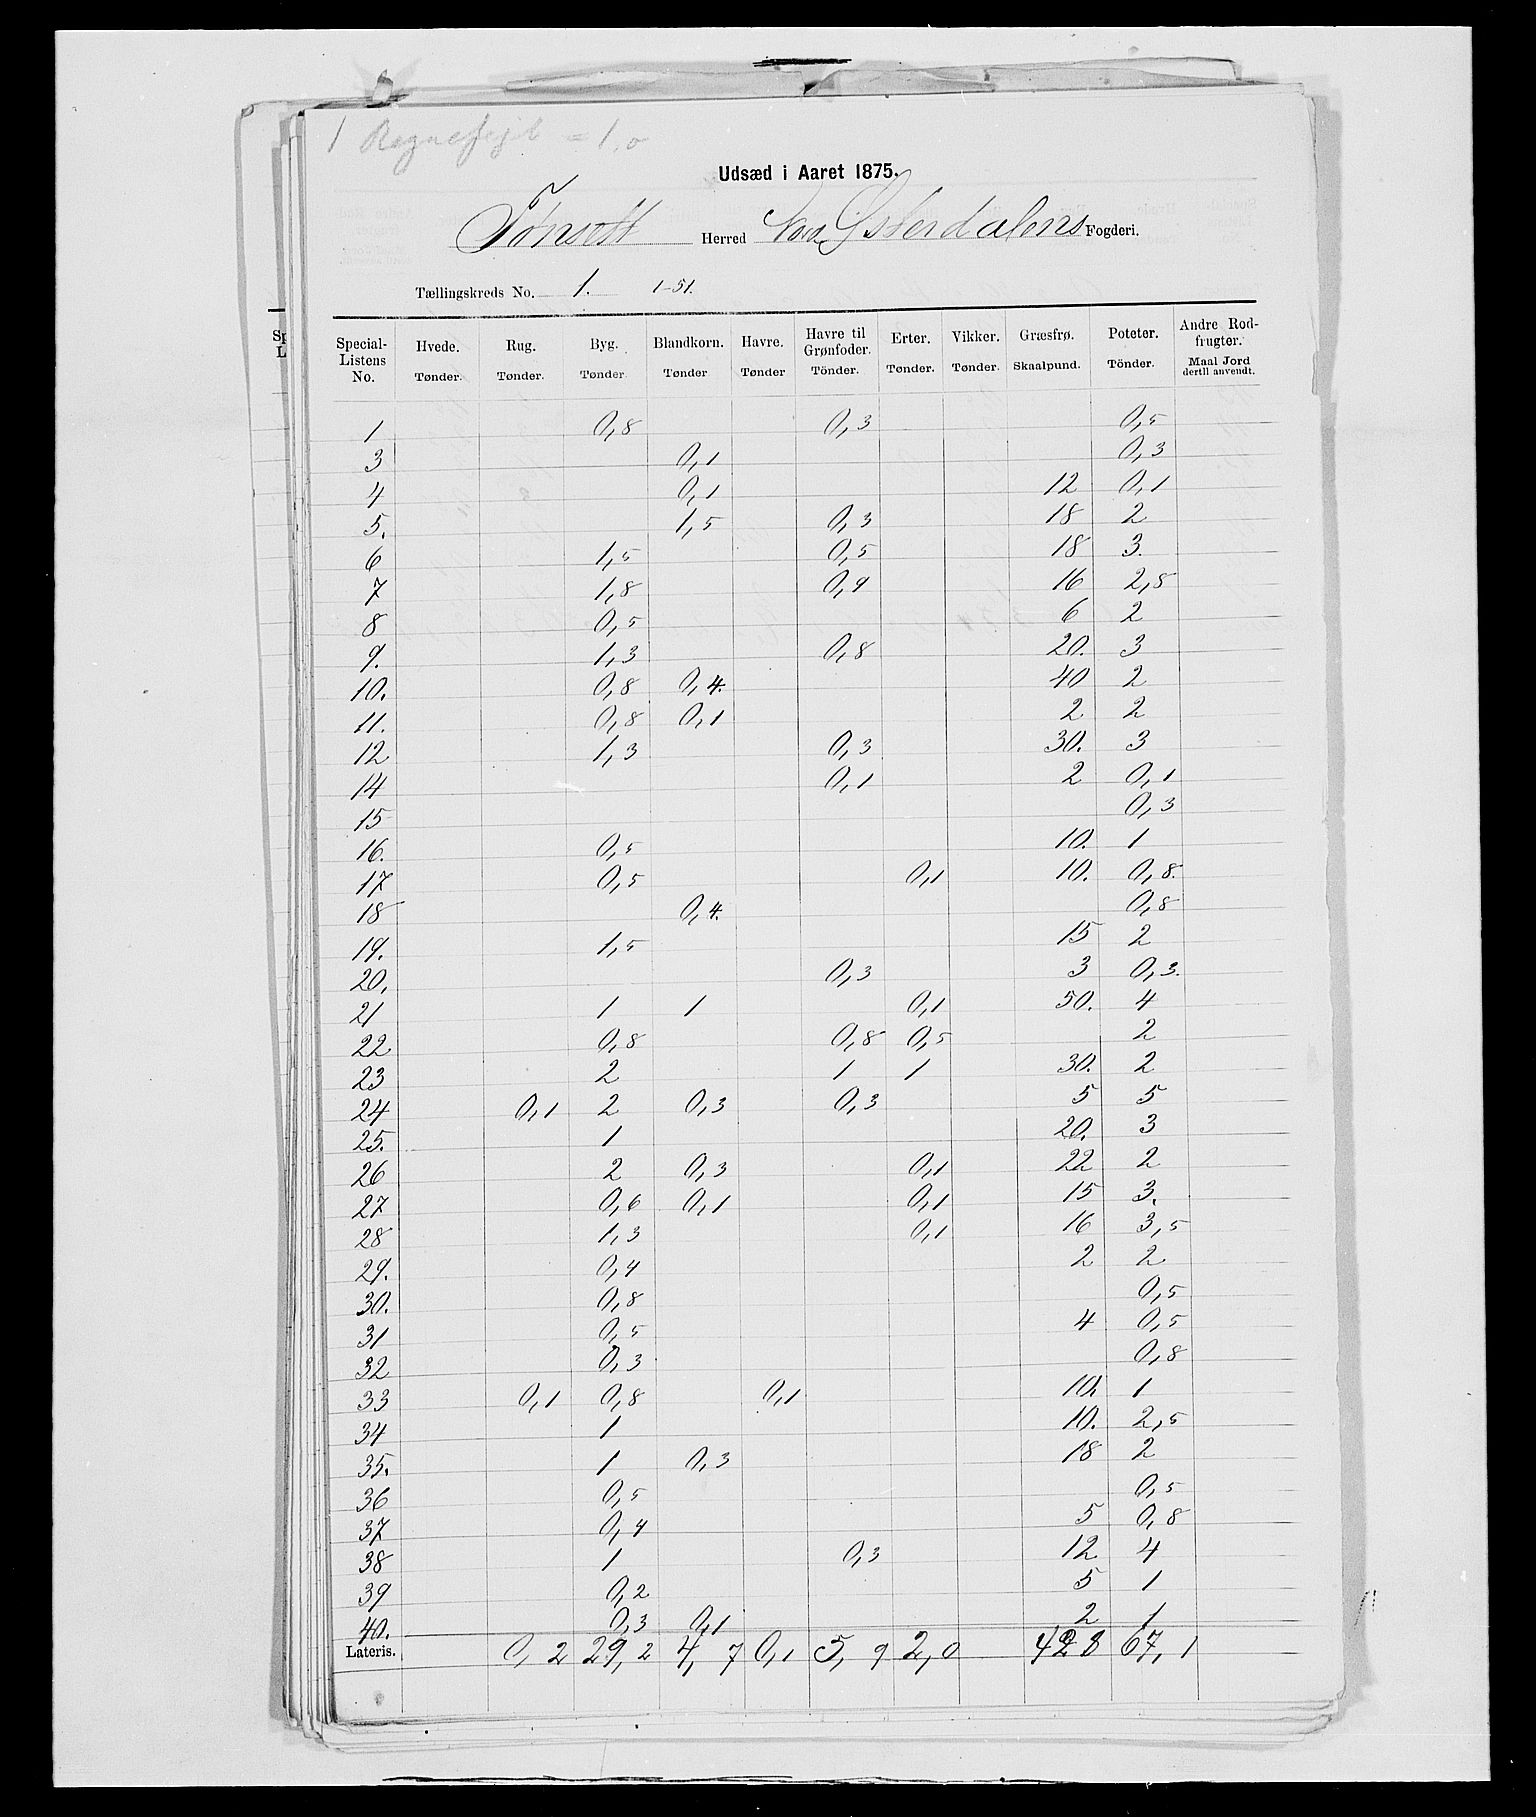 1 Regnefejl = 1,0
Udsæd i Aaret 1875.
Tønsett Herred Nor. Østerdalens Fogderi.
Tællingskreds No. 1. 1-51.
Special-Listens No. | Hvede. Tønder. | Rug. Tønder. | Byg. Tønder | Blandkorn. Tønder | Havre. Tønder | Havre til Grønfoder. Tönder. | Erter. Tønder. | Vikker. Tønder. | Græsfrø. Skaalpund. | Poteter. Tönder. | Andre Rodfrugter. Maal Jord dertil anvendt.
1 0,8 0,3 0,5
3 0,1 0,3
4 0,1 12 0,1
5. 1,5 0,3 18 2
6 1,5 0,5 18 3.
7 1,8 0,9 16 2,8
8 0,5 6 2
9. 1,3 0,8 20. 3
10. 0,8 0,4. 40 2
11. 0,8 0,1 2 2
12 1,3 0,3 30. 3
14 0,1 2 0,1
15 0,3
16. 0,5 10. 1
17 0,5 0,1 10. 0,8.
18 0,4. 0,8
19. 1,5 15 2
20, 0,3 3 0,3.
21 1 1 0,1 50. 4
22 0,8 0,8 0,5 2
23 2 1 1 30. 2
24 0,1 2 0,3 0,3 5 5
25. 1 20. 3
26 2 0,3 0,1 22 2
27 0,6 0,1 0,1 15 3.
28 1,3 0,1 16 3,5
29. 0,4 2 2
30. 0,8 0,5
31 0,5 4 0,5
32 0,3 0,8
33 0,1 0,8 0,1 10, 1
34 1 10. 2,5
35. 1 0,3 18 2
36 0,5 0,5
37 0,4 5 0,8
38 1 0,3 12 4
39 0,2 5 1
40. 0,3 0,1 2 1
Lateris. 0,2 29,2 4,7 0,1 5,9 2,0 428 67,1